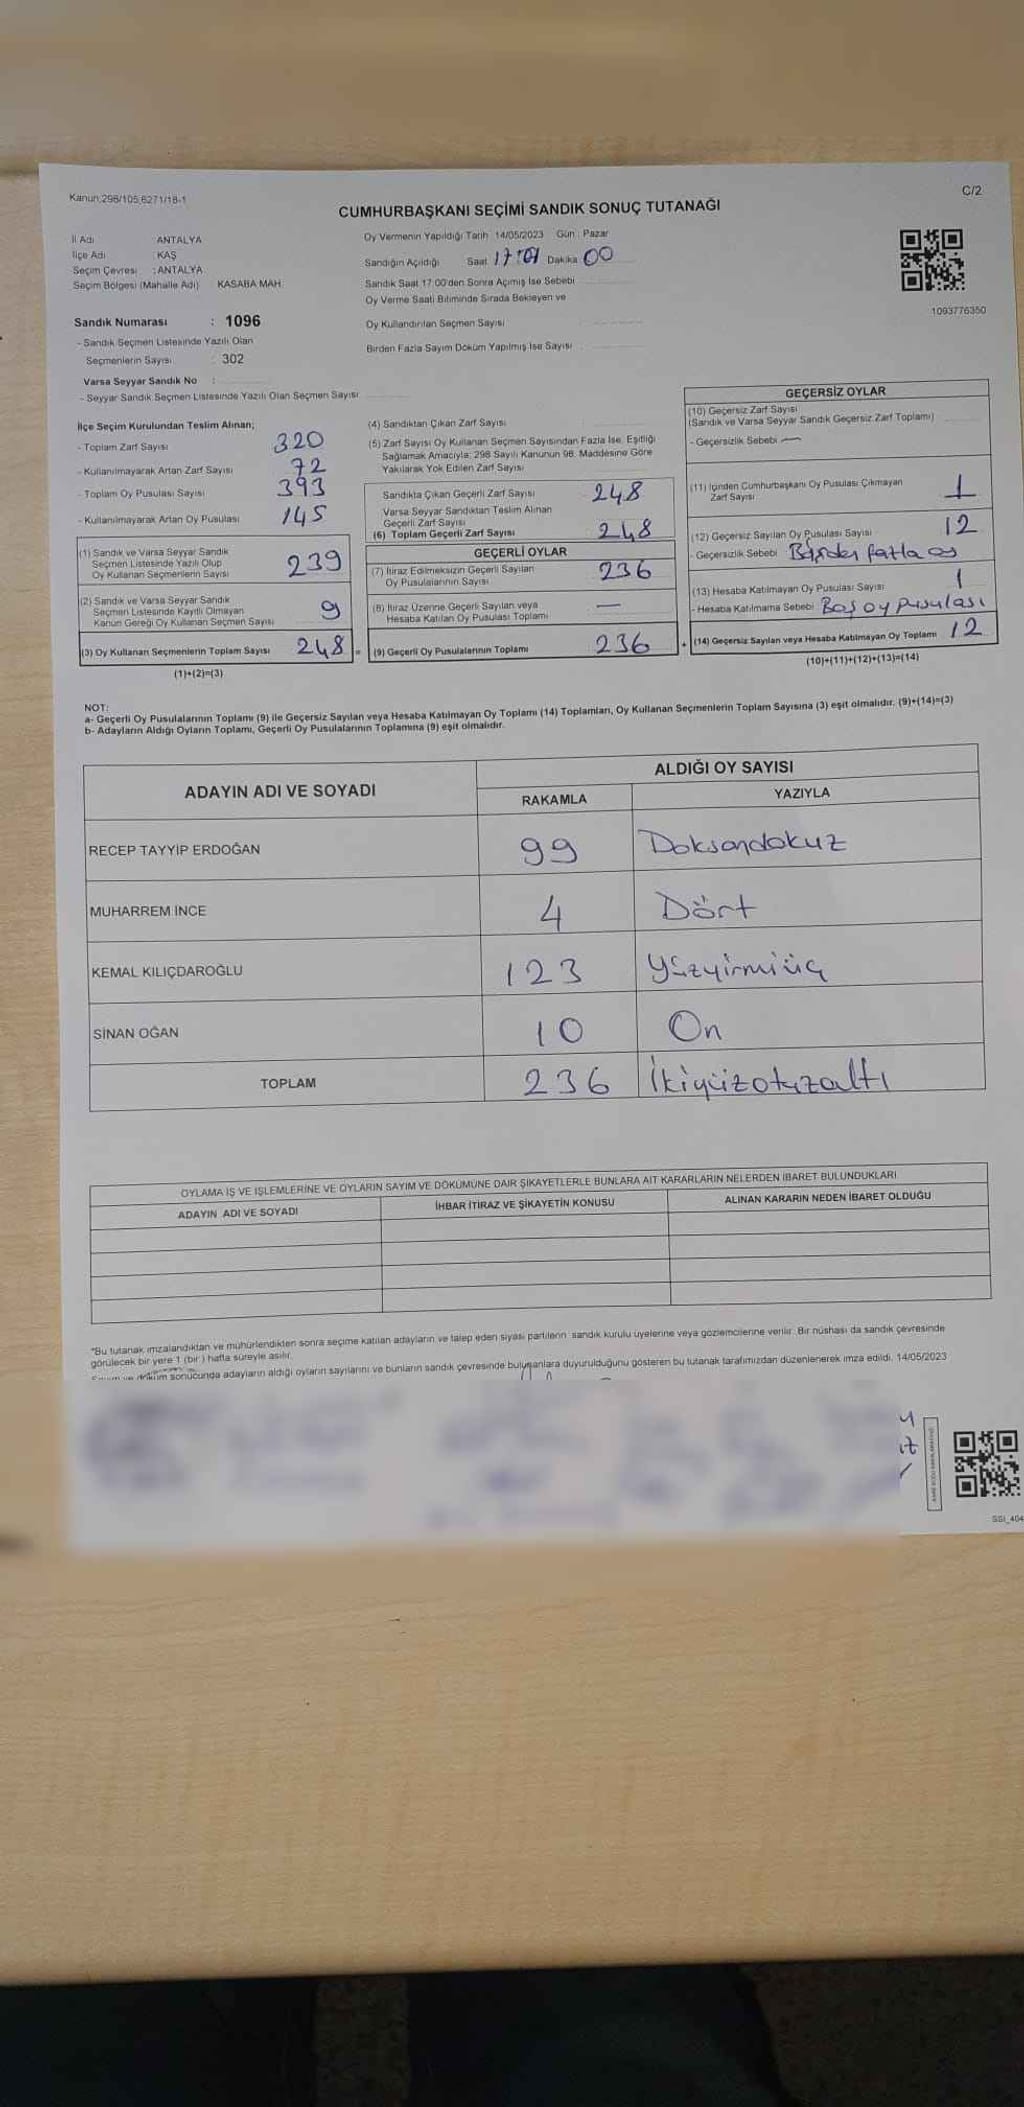 Kanun;298/105;6271/18-1
C/2
CUMHURBAŞKANI SEÇİMİ SANDIK SONUÇ TUTANAĞI
İl Adı ANTALYA
İlçe Adı KAŞ
Seçim Çevresi : ANTALYA
Seçim Bölgesi (Mahalle Adı) KASABA MAH.
Sandık Numarası : 1096
- Sandık Seçmen Listesinde Yazılı Olan
Seçmenlerin Sayısı : 302
Varsa Seyyar Sandık No :
- Seyyar Sandık Seçmen Listesinde Yazılı Olan Seçmen Sayısı
Oy Vermenin Yapıldığı Tarih 14/05/2023 Gün : Pazar
Sandığın Açıldığı Saat 17:01 Dakika 00
Sandık Saat 17.00'den Sonra Açımış İse Sebebi
Oy Verme Saati Bitiminde Sırada Bekleyen ve
Oy Kullandırılan Seçmen Sayısı
Birden Fazla Sayım Döküm Yapılmış İse Sayısı
1093776350
İlçe Seçim Kurulundan Teslim Alınan;
- Toplam Zarf Sayısı 320
- Kullanılmayarak Artan Zarf Sayısı 72
- Toplam Oy Pusulası Sayısı 393
- Kullanılmayarak Artan Oy Pusulası 145
(1) Sandık ve Varsa Seyyar Sandık
Seçmen Listesinde Yazılı Olup
Oy Kullanan Seçmenlerin Sayısı 239
(2) Sandık ve Varsa Seyyar Sandık
Seçmen Listesinde Kayıtlı Olmayan
Kanun Gereği Oy Kullanan Seçmen Sayısı 9
(3) Oy Kullanan Seçmenlerin Toplam Sayısı 248 =
(1)+(2)=(3)
(4) Sandıktan Çıkan Zarf Sayısı
(5) Zarf Sayısı Oy Kullanan Seçmen Sayısından Fazla İse, Eşitliği
Sağlamak Amacıyla, 298 Sayılı Kanunun 98. Maddesine Göre
Yakılarak Yok Edilen Zarf Sayısı
Sandıkta Çıkan Geçerli Zarf Sayısı 248
Varsa Seyyar Sandıktan Teslim Alınan
Geçerli Zarf Sayısı
(6) Toplam Geçerli Zarf Sayısı 248
GEÇERLİ OYLAR
(7) İtiraz Edilmeksizin Geçerli Sayılan
Oy Pusulalarının Sayısı 236
(8) İtiraz Üzerine Geçerli Sayılan veya
Hesaba Katılan Oy Pusulası Toplamı —
(9) Geçerli Oy Pusulalarının Toplamı 236 +
GEÇERSİZ OYLAR
(10) Geçersiz Zarf Sayısı
(Sandık ve Varsa Seyyar Sandık Geçersiz Zarf Toplamı)
- Geçersizlik Sebebi —
(11) İçinden Cumhurbaşkanı Oy Pusulası Çıkmayan
Zarf Sayısı 1
(12) Geçersiz Sayılan Oy Pusulası Sayısı 12
- Geçersizlik Sebebi Birden fazla oy
(13) Hesaba Katılmayan Oy Pusulası Sayısı 1
- Hesaba Katılmama Sebebi Boş oy pusulası
(14) Geçersiz Sayılan veya Hesaba Katılmayan Oy Toplamı 12
(10)+(11)+(12)+(13)=(14)
NOT:
a- Geçerli Oy Pusulalarının Toplamı (9) ile Geçersiz Sayılan veya Hesaba Katılmayan Oy Toplamı (14) Toplamları, Oy Kullanan Seçmenlerin Toplam Sayısına (3) eşit olmalıdır. (9)+(14)=(3)
b- Adayların Aldığı Oyların Toplamı, Geçerli Oy Pusulalarının Toplamına (9) eşit olmalıdır.
ADAYIN ADI VE SOYADI ALDIĞI OY SAYISI
RAKAMLA YAZIYLA
RECEP TAYYİP ERDOĞAN 99 Doksandokuz
MUHARREM İNCE 4 Dört
KEMAL KILIÇDAROĞLU 123 Yüzyirmiüç
SİNAN OĞAN 10 On
TOPLAM 236 İkiyüzotuzaltı
OYLAMA İŞ VE İŞLEMLERİNE VE OYLARIN SAYIM VE DÖKÜMÜNE DAİR ŞİKAYETLERLE BUNLARA AİT KARARLARIN NELERDEN İBARET BULUNDUKLARI
ADAYIN ADI VE SOYADI İHBAR İTİRAZ VE ŞİKAYETİN KONUSU ALINAN KARARIN NEDEN İBARET OLDUĞU
"Bu tutanak imzalandıktan ve mühürlendikten sonra seçime katılan adayların ve talep eden siyasi partilerin sandık kurulu üyelerine veya gözlemcilerine verilir. Bir nüshası da sandık çevresinde
görülecek bir yere 1 (bir) hafta süreyle asılır.
Sayım ve döküm sonucunda adayların aldığı oyların sayılarını ve bunların sandık çevresinde bulunanlara duyurulduğunu gösteren bu tutanak tarafımızdan düzenlenerek imza edildi. 14/05/2023
SSI_404